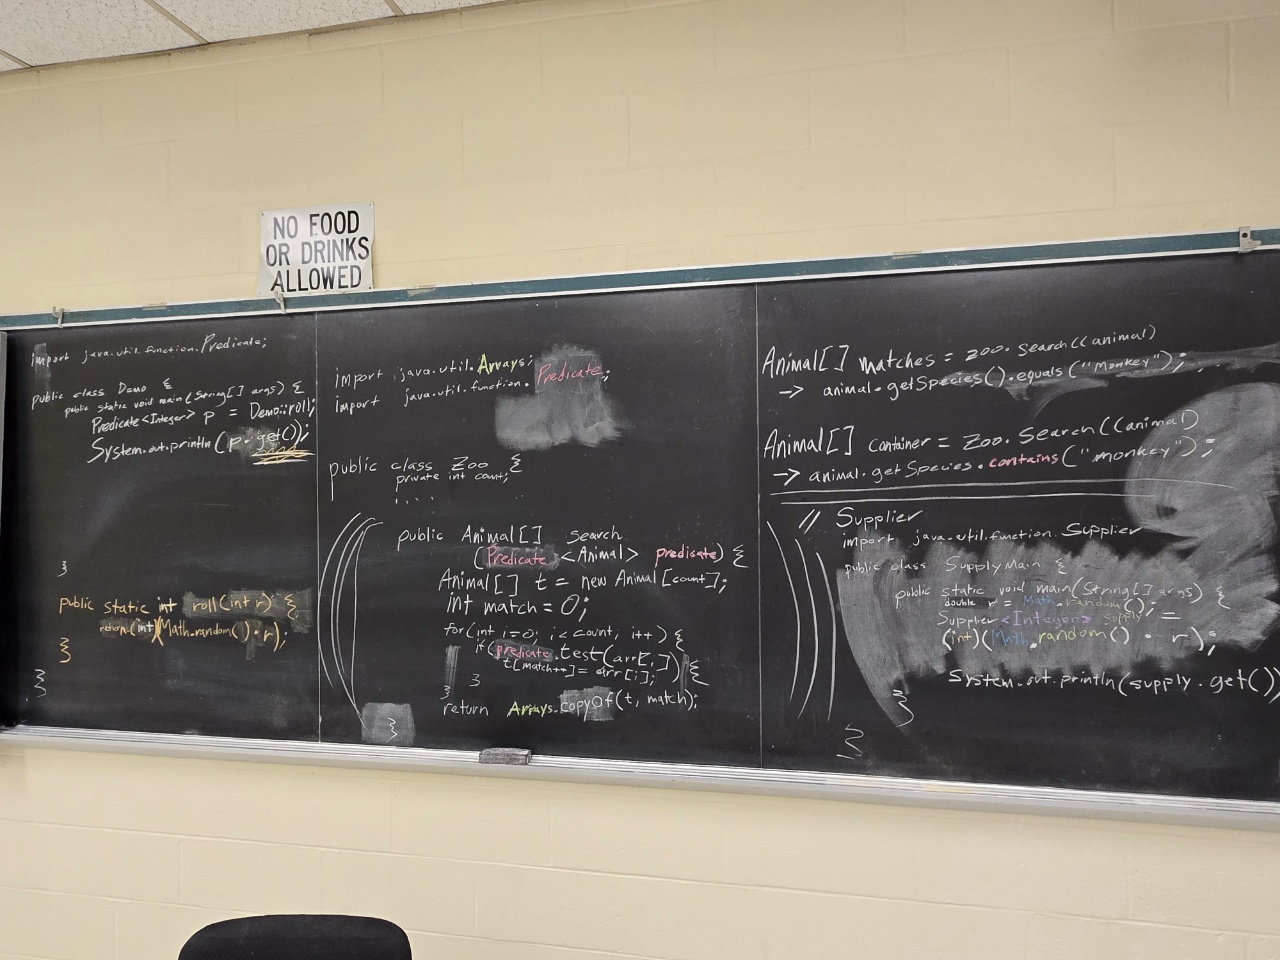 NO FOOD
OR DRINKS
ALLOWED
import java.util.function.Predicate;
public class Demo {
public static void main(String[] args) {
Predicate<Integer> p = Demo::roll;
System.out.println(p.get());
}
public static int roll(int r) {
return (int)(Math.random() · r);
}
}
import java.util.Arrays;
import java.util.function.Predicate;
public class Zoo {
private int count;
....
public Animal[] search
(Predicate <Animal> predicate) {
Animal[] t = new Animal[count];
int match = 0;
for(int i=0; i<count, i++) {
if(predicate.test(arr[i])) {
t[match++] = arr[i];
}
}
return Arrays.copyOf(t, match);
}
Animal[] matches = zoo.search((animal)
-> animal.getSpecies().equals("monkey");
Animal[] container = zoo.search((animal)
-> animal.getSpecies.contains("monkey");
// Supplier
import java.util.function.Supplier
public class SupplyMain {
public static void main(String[] args) {
double r = Math.random();
Supplier <Integer> supply =
(int)(Math.random() · r);
System.out.println(supply.get())
}
}